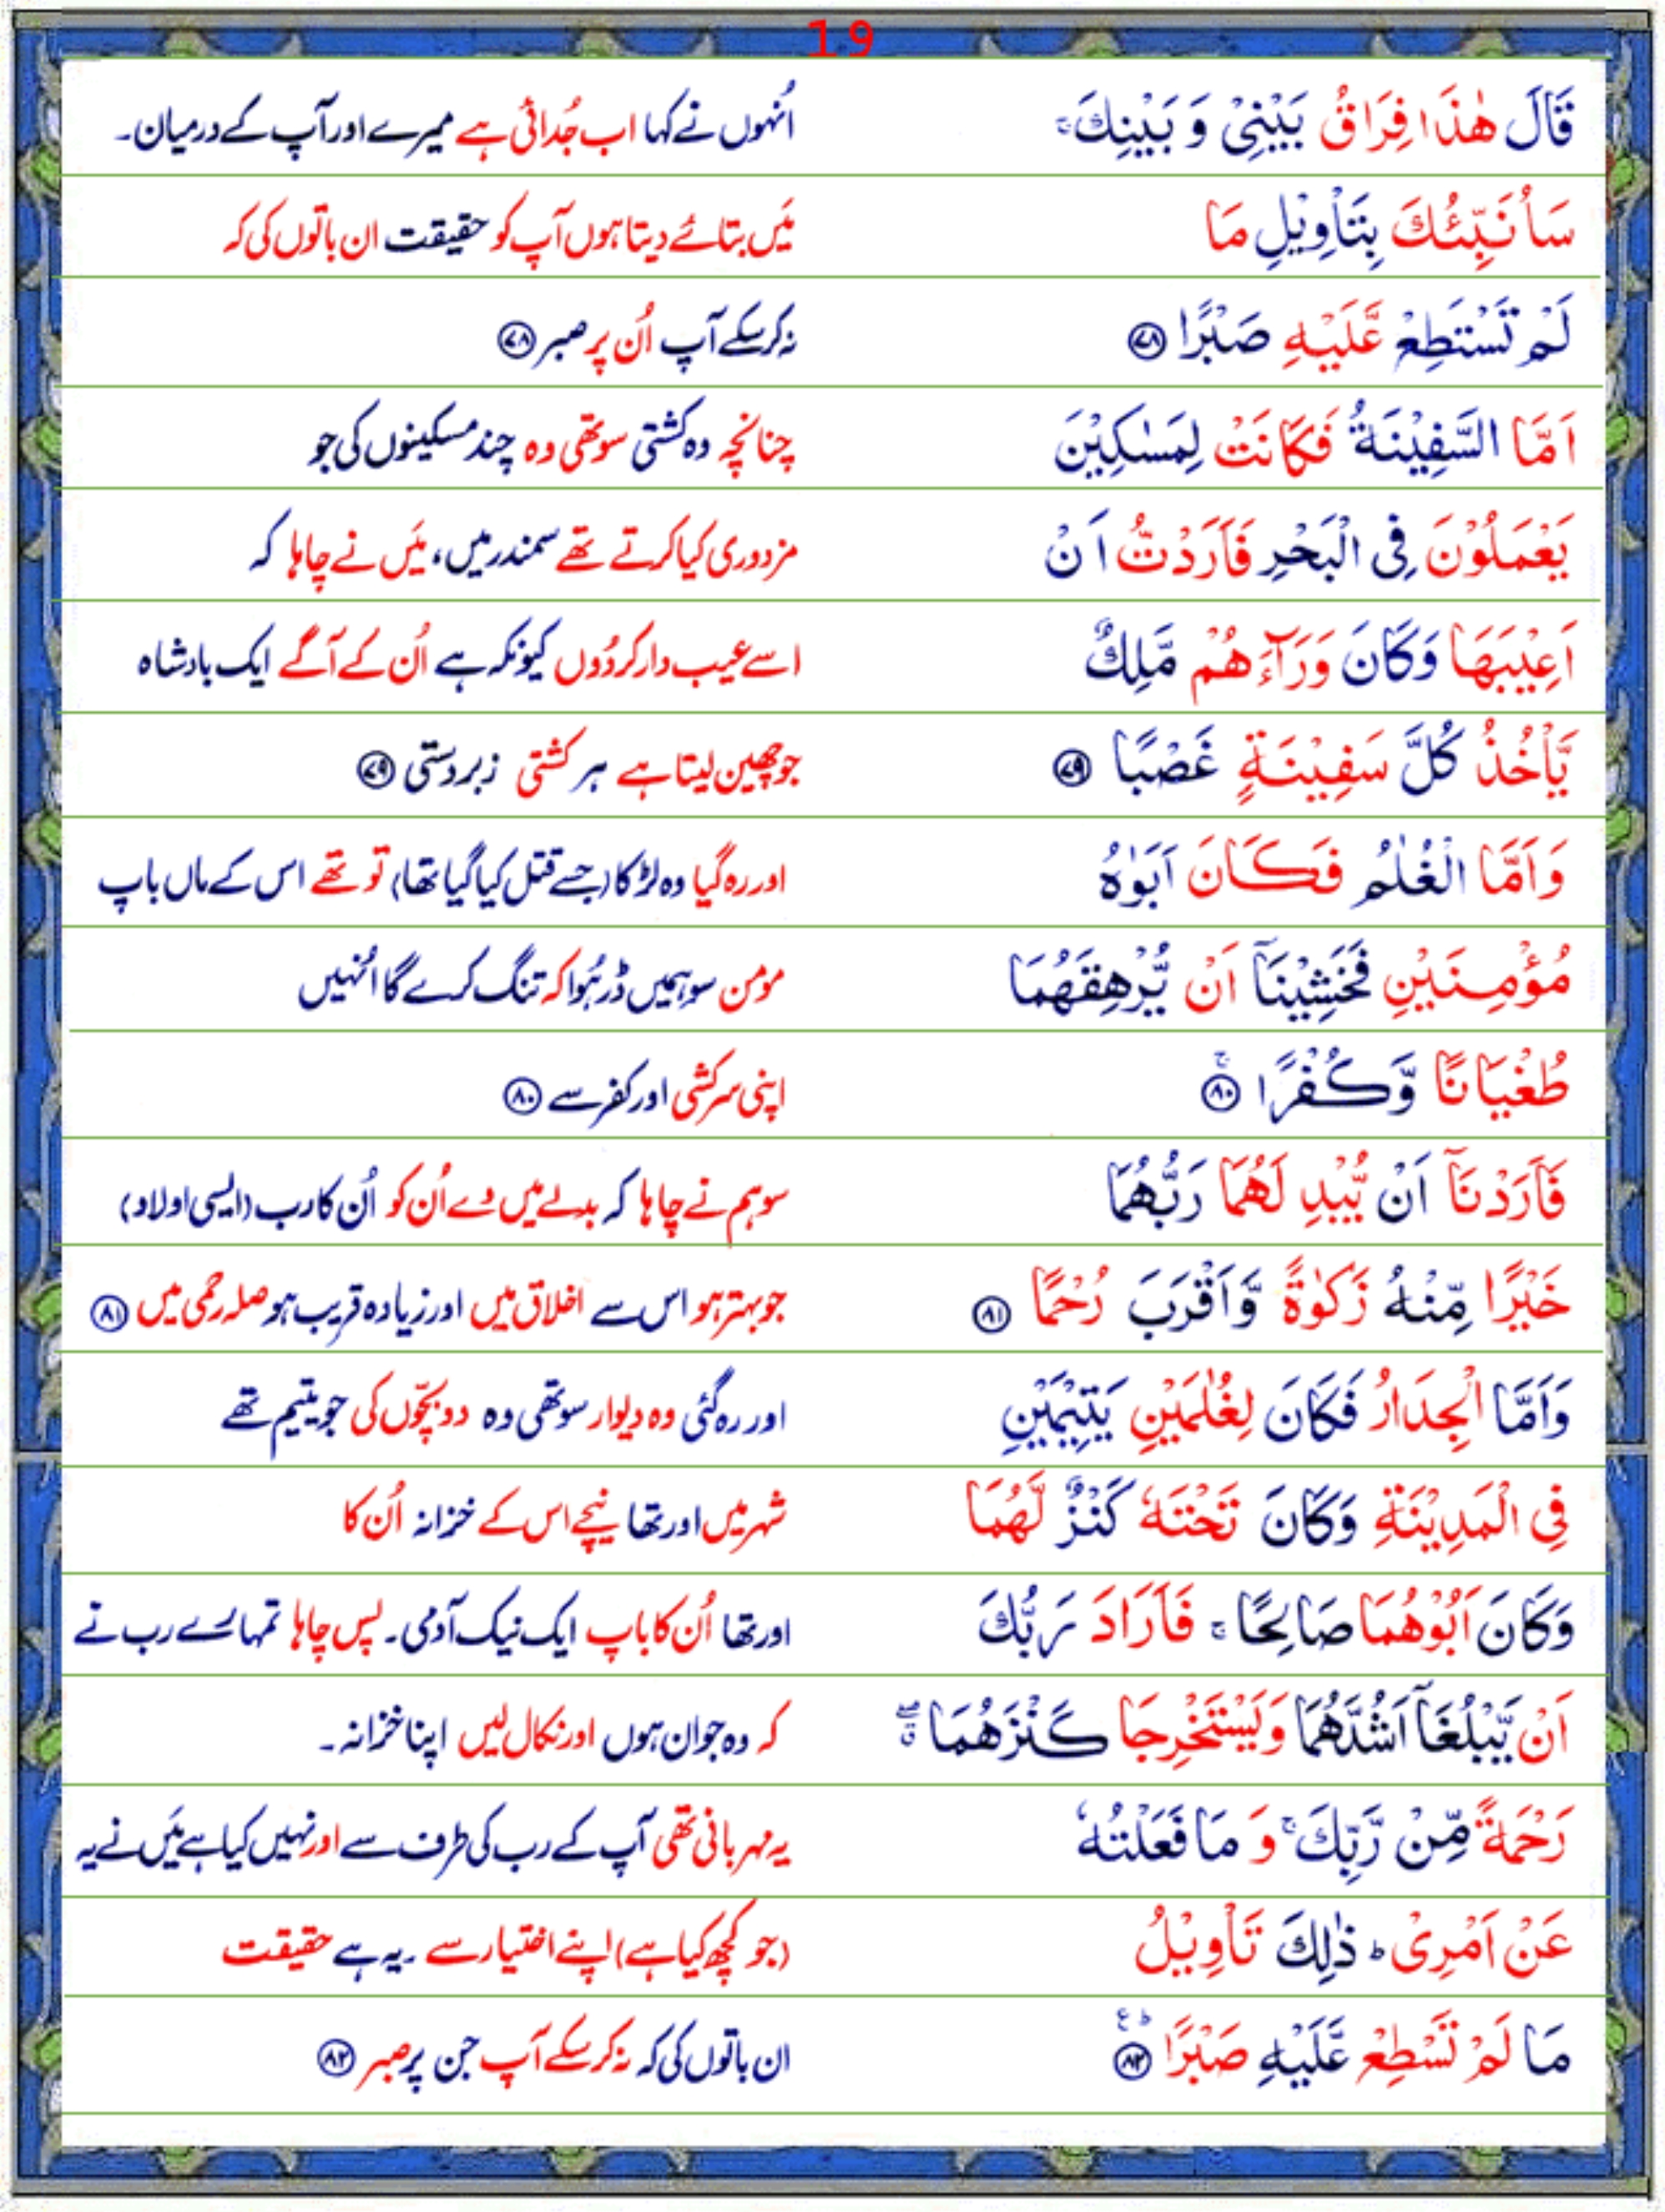 19
قَالَ هٰذَا فِرَاقُ بَيْنِيْ وَ بَيْنِكَ ۚ اُنہوں نے کہا اب جُدائی ہے میرے اور آپ کے درمیان۔
سَاُنَبِّئُكَ بِتَاْوِيْلِ مَا مَیں بتائے دیتا ہوں آپ کو حقیقت ان باتوں کی کہ
لَمْ تَسْتَطِعْ عَّلَيْهِ صَبْرًا ﴿۷۸﴾ نہ کرسکے آپ اُن پر صبر ﴿۷۸﴾
اَمَّا السَّفِيْنَةُ فَكَانَتْ لِمَسٰكِيْنَ چنانچہ وہ کشتی سو تھی وہ چند مسکینوں کی جو
يَعْمَلُوْنَ فِى الْبَحْرِ فَاَرَدْتُّ اَنْ مزدوری کیا کرتے تھے سمندر میں، مَیں نے چاہا کہ
اَعِيْبَهَا وَكَانَ وَرَآءَهُمْ مَّلِكٌ اسے عیب دار کردُوں کیونکہ ہے اُن کے آگے ایک بادشاہ
يَّاْخُذُ كُلَّ سَفِيْنَةٍ غَصْبًا ﴿۷۹﴾ جو چھین لیتا ہے ہر کشتی زبردستی ﴿۷۹﴾
وَاَمَّا الْغُلٰمُ فَكَانَ اَبَوٰهُ اور رہ گیا وہ لڑکا (جسے قتل کیا گیا تھا) تو تھے اس کے ماں باپ
مُؤْمِنَيْنِ فَخَشِيْنَآ اَنْ يُّرْهِقَهُمَا مومن سو ہمیں ڈر ہُوا کہ تنگ کرے گا اُنہیں
طُغْيَانًا وَّكُفْرًا ۚ ﴿۸۰﴾ اپنی سرکشی اور کفر سے ﴿۸۰﴾
فَاَرَدْنَآ اَنْ يُّبْدِ لَهُمَا رَبُّهُمَا سو ہم نے چاہا کہ بدلے میں دے اُن کو اُن کا رب (ایسی اولاد)
خَيْرًا مِّنْهُ زَكٰوةً وَّاَقْرَبَ رُحْمًا ﴿۸۱﴾ جو بہتر ہو اس سے اخلاق میں اور زیادہ قریب ہو صلہ رحمی میں ﴿۸۱﴾
وَاَمَّا الْجِدَارُ فَكَانَ لِغُلٰمَيْنِ يَتِيْمَيْنِ اور رہ گئی وہ دیوار سو تھی وہ دو بچّوں کی جو یتیم تھے
فِى الْمَدِيْنَةِ وَكَانَ تَحْتَهٗ كَنْزٌ لَّهُمَا شہر میں اور تھا نیچے اس کے خزانہ اُن کا
وَكَانَ اَبُوْهُمَا صَالِحًا ۚ فَاَرَادَ رَبُّكَ اور تھا اُن کا باپ ایک نیک آدمی۔ پس چاہا تمہارے رب نے
اَنْ يَّبْلُغَآ اَشُدَّهُمَا وَيَسْتَخْرِجَا كَنْزَهُمَا ۖۗ کہ وہ جوان ہوں اور نکال لیں اپنا خزانہ۔
رَحْمَةً مِّنْ رَّبِّكَ ۚ وَ مَا فَعَلْتُهٗ یہ مہربانی تھی آپ کے رب کی طرف سے اور نہیں کیا ہے مَیں نے یہ
عَنْ اَمْرِىْ ؕ ذٰلِكَ تَاْوِيْلُ (جو کچھ کیا ہے) اپنے اختیار سے۔ یہ ہے حقیقت
مَا لَمْ تَسْطِعْ عَّلَيْهِ صَبْرًا ﴿۸۲﴾ؕع ان باتوں کی کہ نہ کرسکے آپ جن پر صبر ﴿۸۲﴾